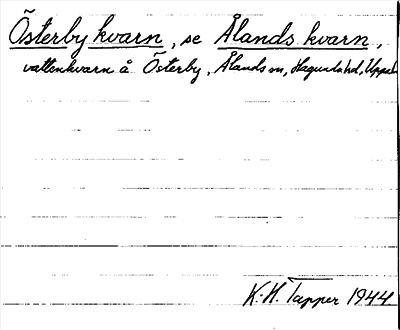 Österby kvarn, se Ålands kvarn,
vattenkvarn å Österby, Ålands sn, Hagunda hd, Uppsala
K.-H. Tapper 1944